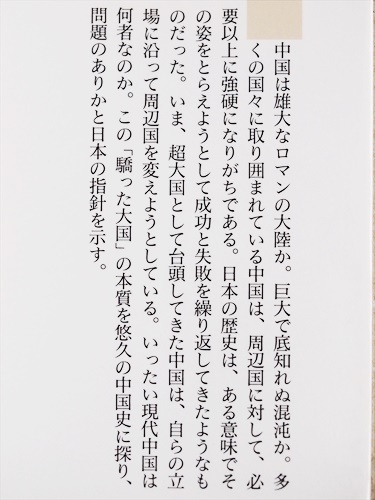 中国は雄大なロマンの大陸か。巨大で底知れぬ混沌か。多
くの国々に取り囲まれている中国は、周辺国に対して、必
要以上に強硬になりがちである。日本の歴史は、ある意味でそ
の姿をとらえようとして成功と失敗を繰り返してきたようなも
のだった。いま、超大国として台頭してきた中国は、自らの立
場に沿って周辺国を変えようとしている。いったい現代中国は
何者なのか。この「驕った大国」の本質を悠久の中国史に探り、
問題のありかと日本の指針を示す。